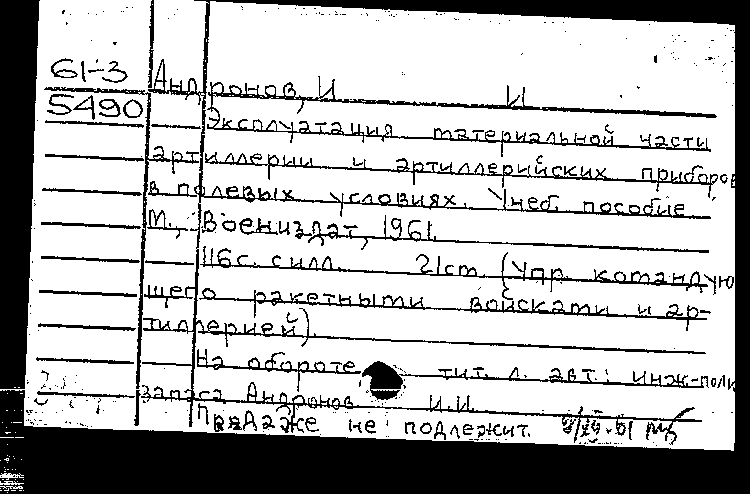 61-3
5490
Андронов, И И
Эксплуатация материальной части
артиллерии и артиллерийских приборов
в полевых условиях. Учеб. пособие
М., Воениздат, 1961.
116с. с илл. 21см. (Упр. командую
щего ракетными войсками и ар-
тиллерией).
На обороте тит. л. авт.: инж-полк
запаса Андронов И.И.
Продаже не подлежит.